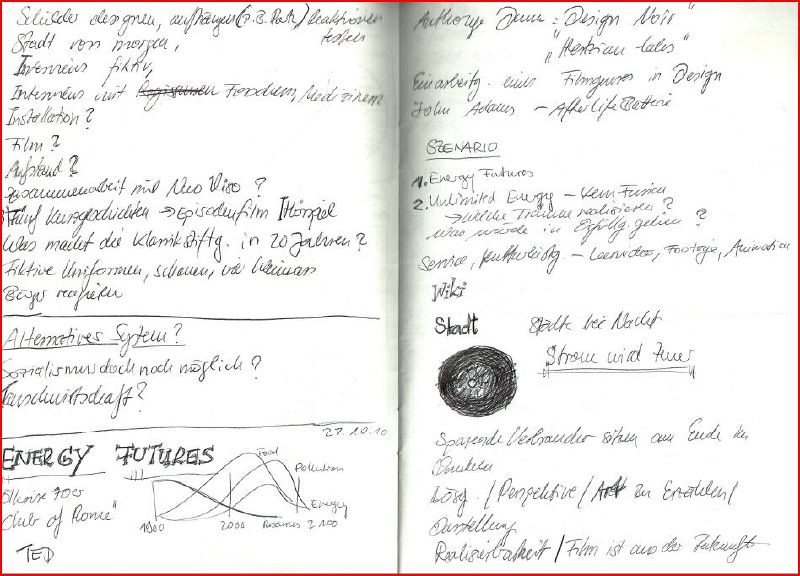 Schilder designen, aufhängen (z.B. Park) Reaktionen
testen
Stadt von morgen,
Interviews fiktiv,
Interviews mit Forschern, Medizinern
Installation?
Film?
Aufstand?
Zusammenarbeit mit Neo Viso?
Fünf Kurzgeschichten → Episodenfilm / Hörspiel
Was macht die Klassikstiftg. in 20 Jahren?
Fiktive Uniformen, schauen, wie Weimars
Bürger reagieren
Alternatives System?
Sozialismus doch noch möglich?
Tauschwirtschaft?
27.10.10
ENERGY FUTURES
70er
"Club of Rome"
TED
Food
Pollution
Energy
Resources
1900 2000 2100
Anthony Dunn: "Design Noir"
"Hertzian tales"
Einarbeitg. eines Filmgenres in Design
John Adams - AfterLife Batterie
SZENARIO
1. Energy Futures
2. Unlimited Energy - Kernfusion
→ welche Träume realisieren?
was würde in Erfüllg. gehen?
Service, - Lernvideo, Fotografie, Animation
Wiki
Stadt
Städte bei Nacht
Strom wird Teuer
Sparende Verbraucher sitzen am Ende im
Dunkeln
Lösg. / Perspektive / Art zu Erzählen /
Darstellung
Realisierbarkeit / Film ist aus der Zukunft